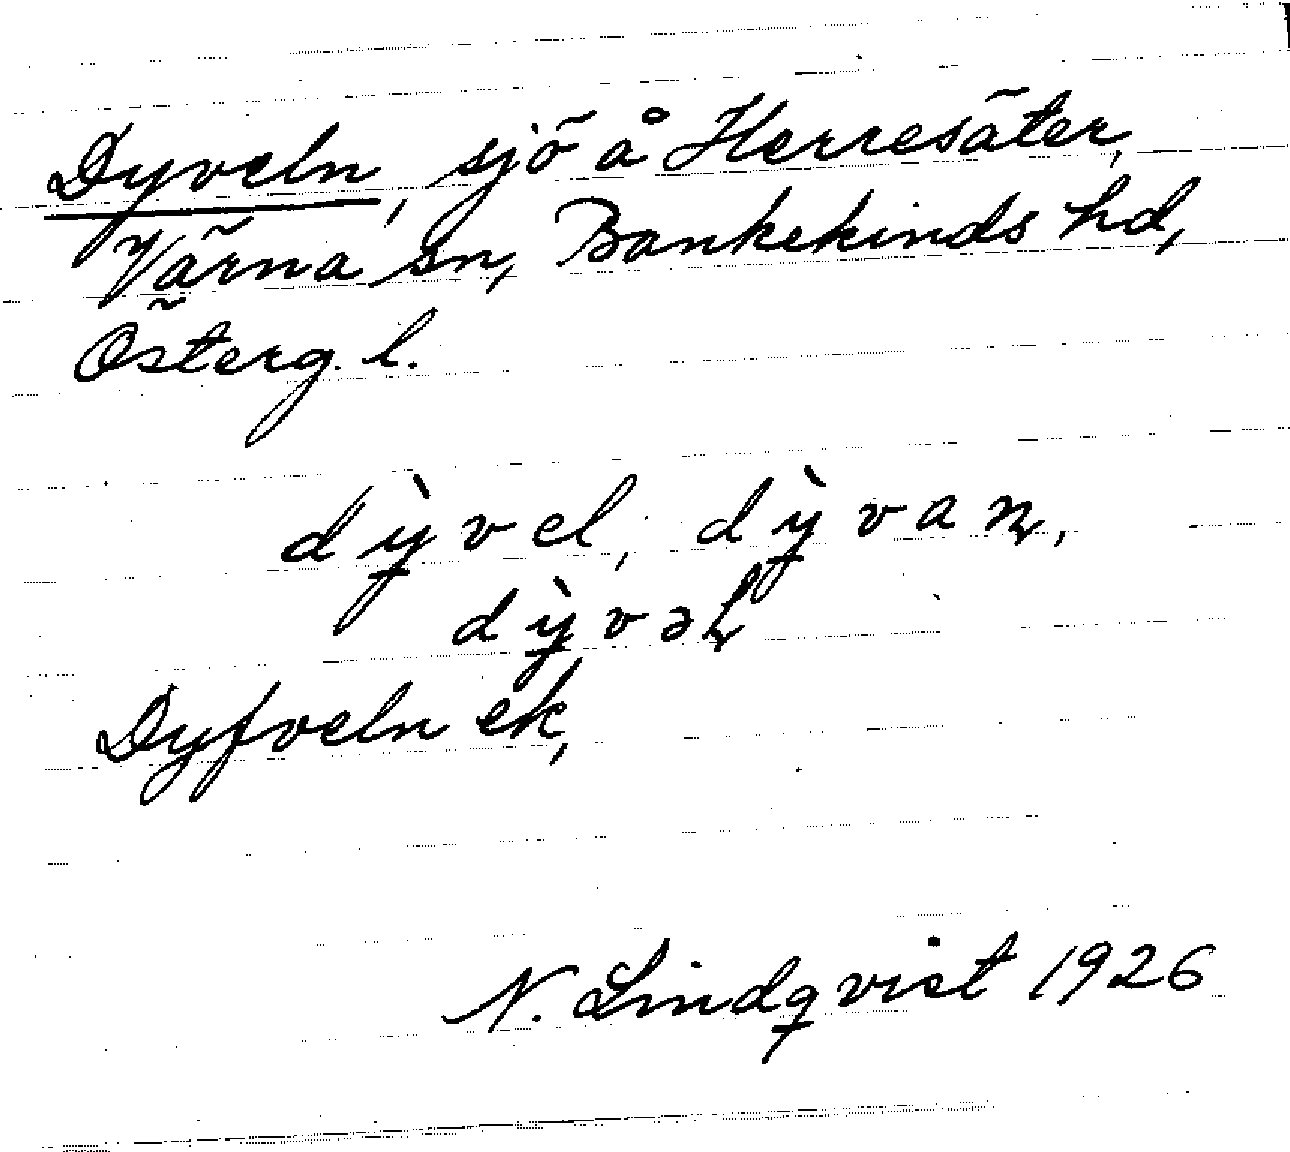 Dyveln, sjö å Herresäter,
Värna sn, Bankekinds hd,
Österg. l.
dỳvel, dỳvan,
dỳvəl
Dyfveln ek,
N. Lindqvist 1926